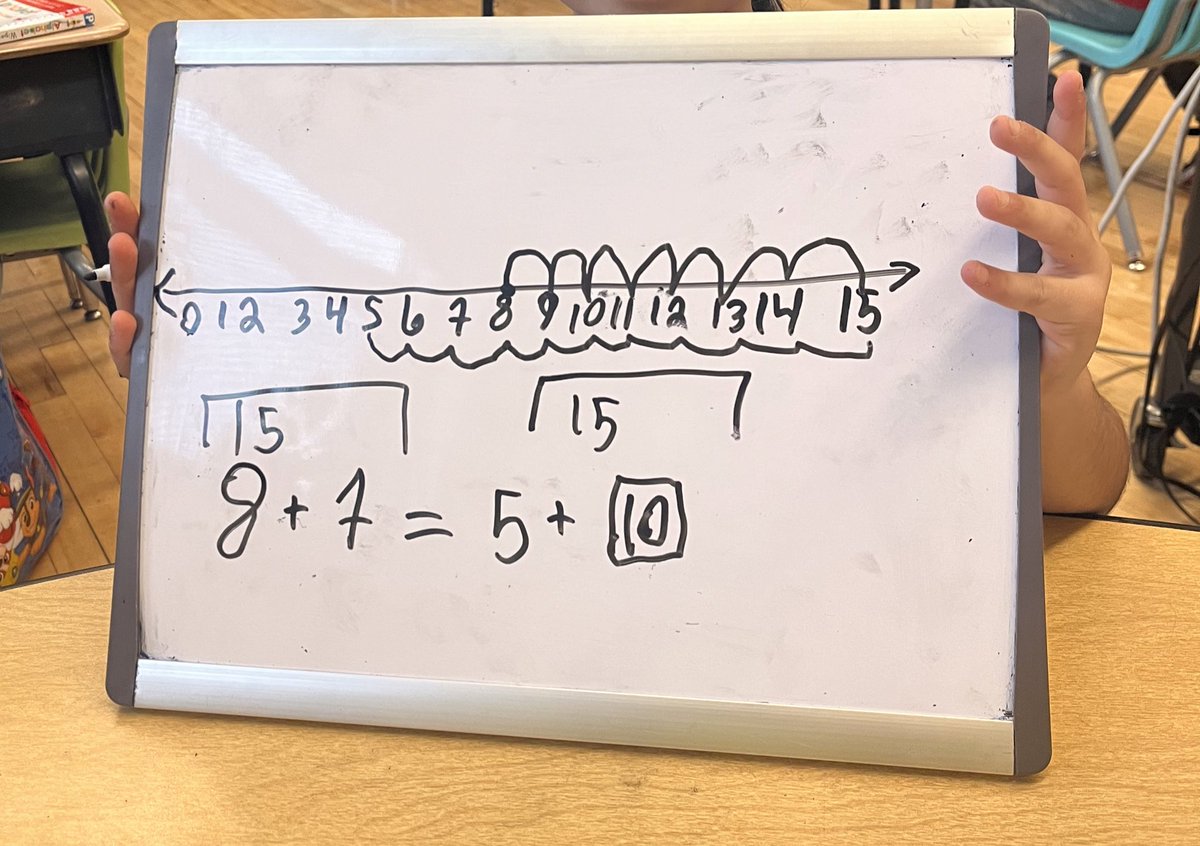 0 1 2 3 4 5 6 7 8 9 10 11 12 13 14 15
15 15
8 + 7 = 5 + 10